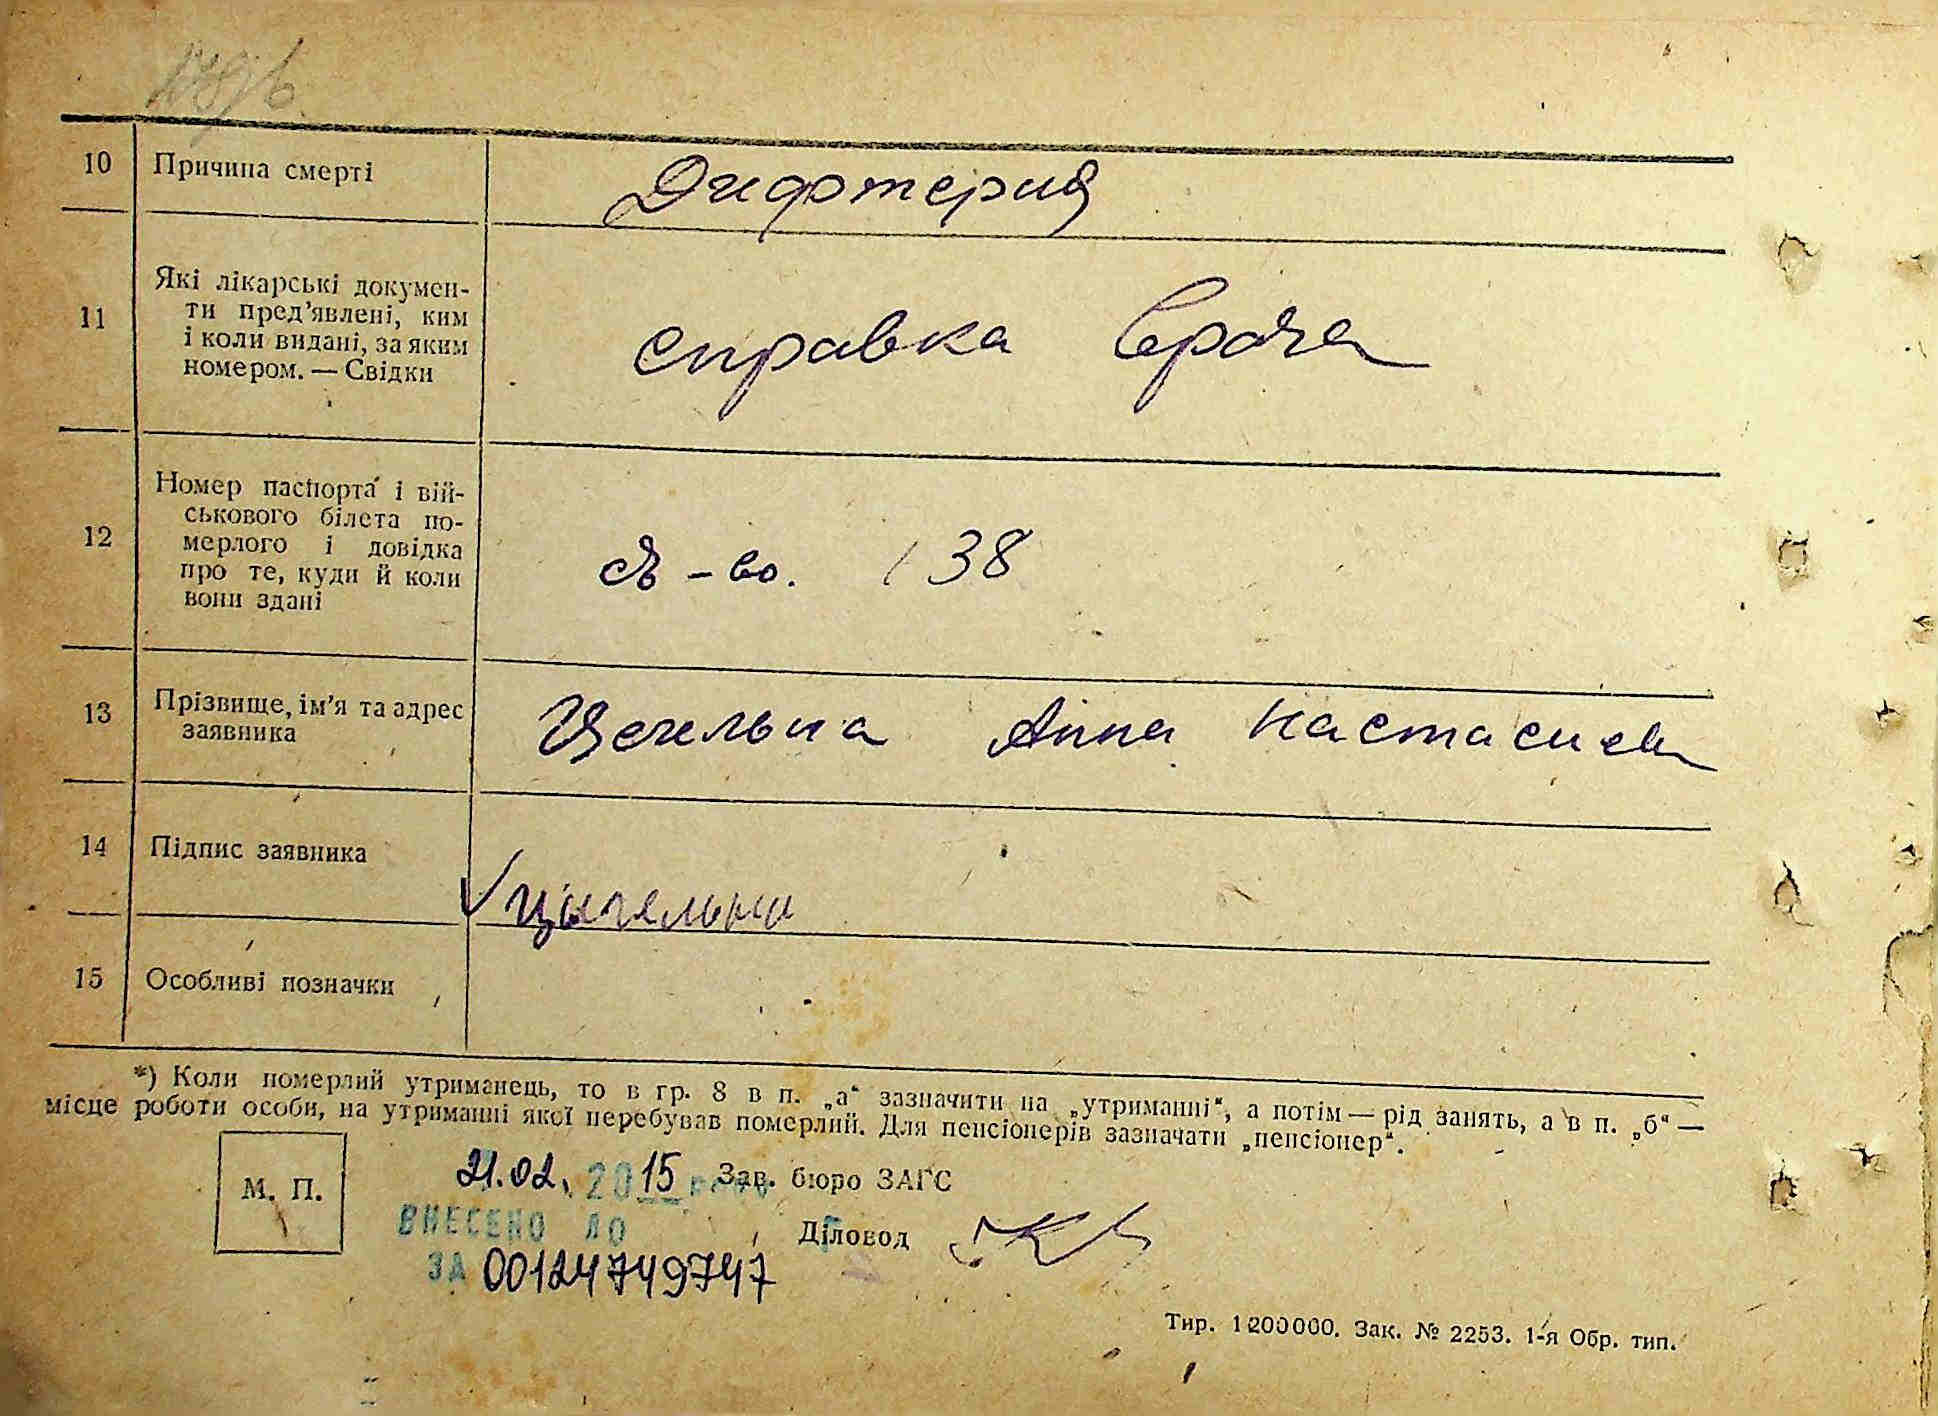 10 Причина смерті Дифтерия
11 Які лікарські докумен-
ти пред'явлені, ким
і коли видані, за яким
номером. — Свідки
справка врача
12 Номер паспорта і вій-
ськового білета по-
мерлого і довідка
про те, куди й коли
вони здані
св-во. 138
13 Прізвище, ім'я та адрес
заявника
Анна
14 Підпис заявника
15 Особливі позначки
*) Коли померлий утриманець, то в гр. 8 в п. „а“ зазначити на „утриманні“, а потім — рід занять, а в п. „б“ —
місце роботи особи, на утриманні якої перебував померлий. Для пенсіонерів зазначати „пенсіонер“.
М. П.
21.02. 2015 Зав. бюро ЗАГС
ВНЕСЕНО ДО
Діловод
ЗА 00124749747
Тир. 1200000. Зак. № 2253. 1-я Обр. тип.